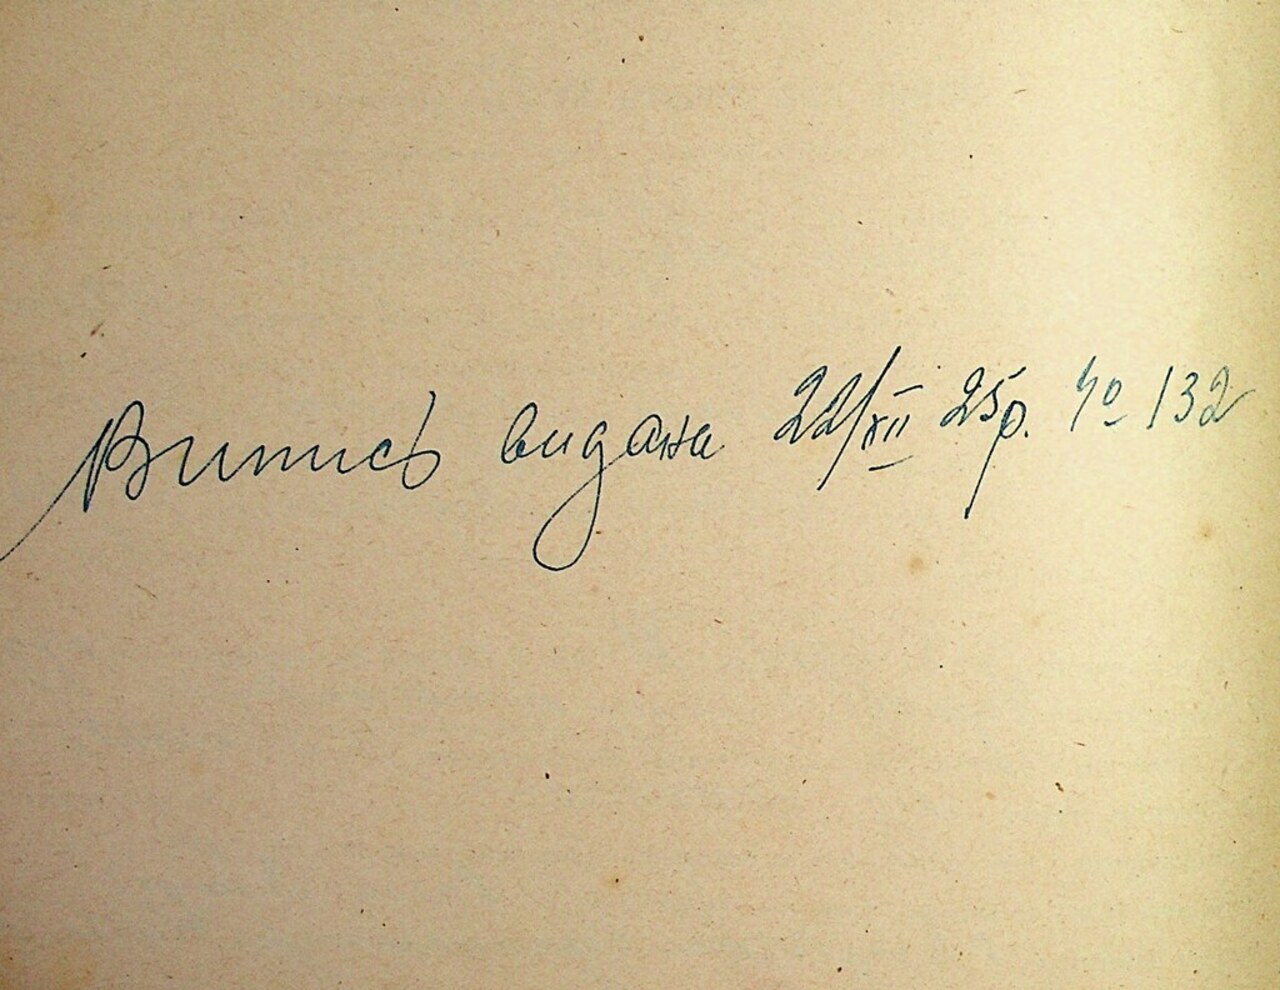 Випись видана 22/XII 25р. № 132